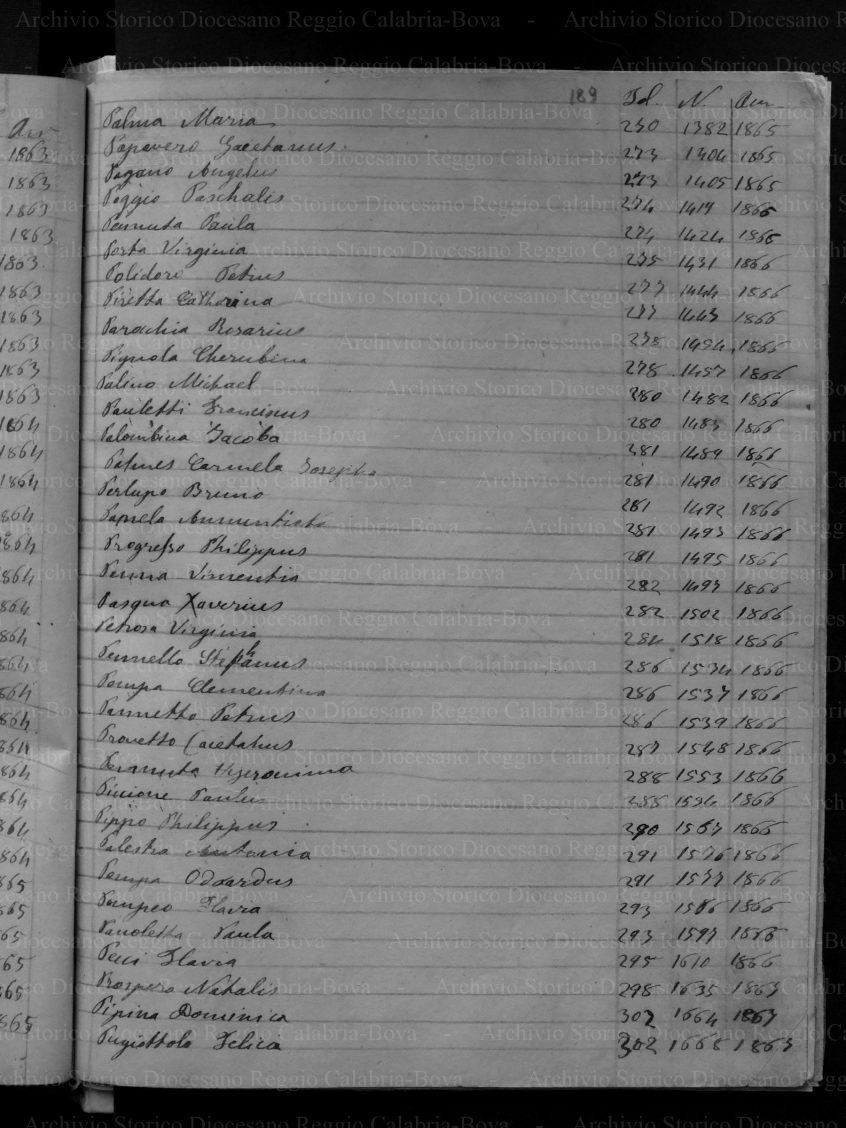 189 Fol. N. Ann
Palma Maria 270 1382 1865
Papavero Gaetanus 273 1404 1865
Pagano Angelus 273 1405 1865
Poggio Paschalis 274 1419 1866
Pennuta Paula 274 1424 1866
Porta Virginia 275 1431 1866
Polidoro Petrus 277 1444 1866
Piretta Catherina 277 1447 1866
Parocchia Rosarius 278 1454 1866
Pignola Cherubina 278 1457 1866
Palino Michael 280 1482 1866
Pauletti Francinus 280 1487 1866
Palombina Jacoba 281 1489 1866
Carmela Joseph 281 1490 1866
Perlupo Bruno 281 1492 1866
Annuntiata 281 1493 1866
Progresso Philippus 281 1495 1866
Penna Vincentia 282 1499 1866
Pasqua Xaverius 282 1502 1866
Petrosa Virginia 284 1518 1866
Pennello Stephanus 286 1534 1866
Pompa Clementina 286 1537 1866
Pannetto Petrus 286 1539 1866
Provetto Caietanus 287 1548 1866
Pennuta Hyeronima 288 1553 1866
Picione Paulus 288 1554 1866
Pippo Philippus 290 1567 1866
Palestra Antonia 291 1576 1866
Pompa Odoardus 291 1577 1866
Pompeo Flavia 293 1586 1866
Panoletta Paula 293 1597 1866
Pecci Flavia 295 1610 1866
Prospero Natalis 298 1635 1867
Pipina Dominica 302 1664 1867
Pugiottolo Felicia 302 1668 1867
Ann
1863
1863
1863
1863
1863
1863
1863
1863
1863
1863
1864
1864
1864
864
1864
864
864
864
864
864
864
864
864
864
864
864
865
865
65
65
865
865
Archivio Storico Diocesano Reggio Calabria-Bova